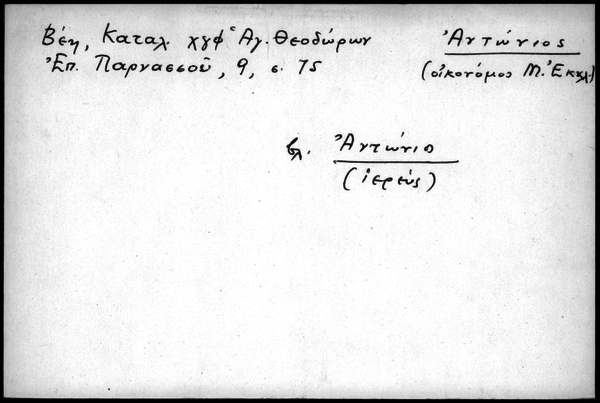 Βέη, Καταλ. χγφ Ἁγ. Θεοδώρων
Ἐπ. Παρνασσοῦ, 9, σ. 75
Ἀντώνιος
(οἰκονόμος Μ. Ἐκκλ.)
βλ. Ἀντώνιο
(ἱερεύς)